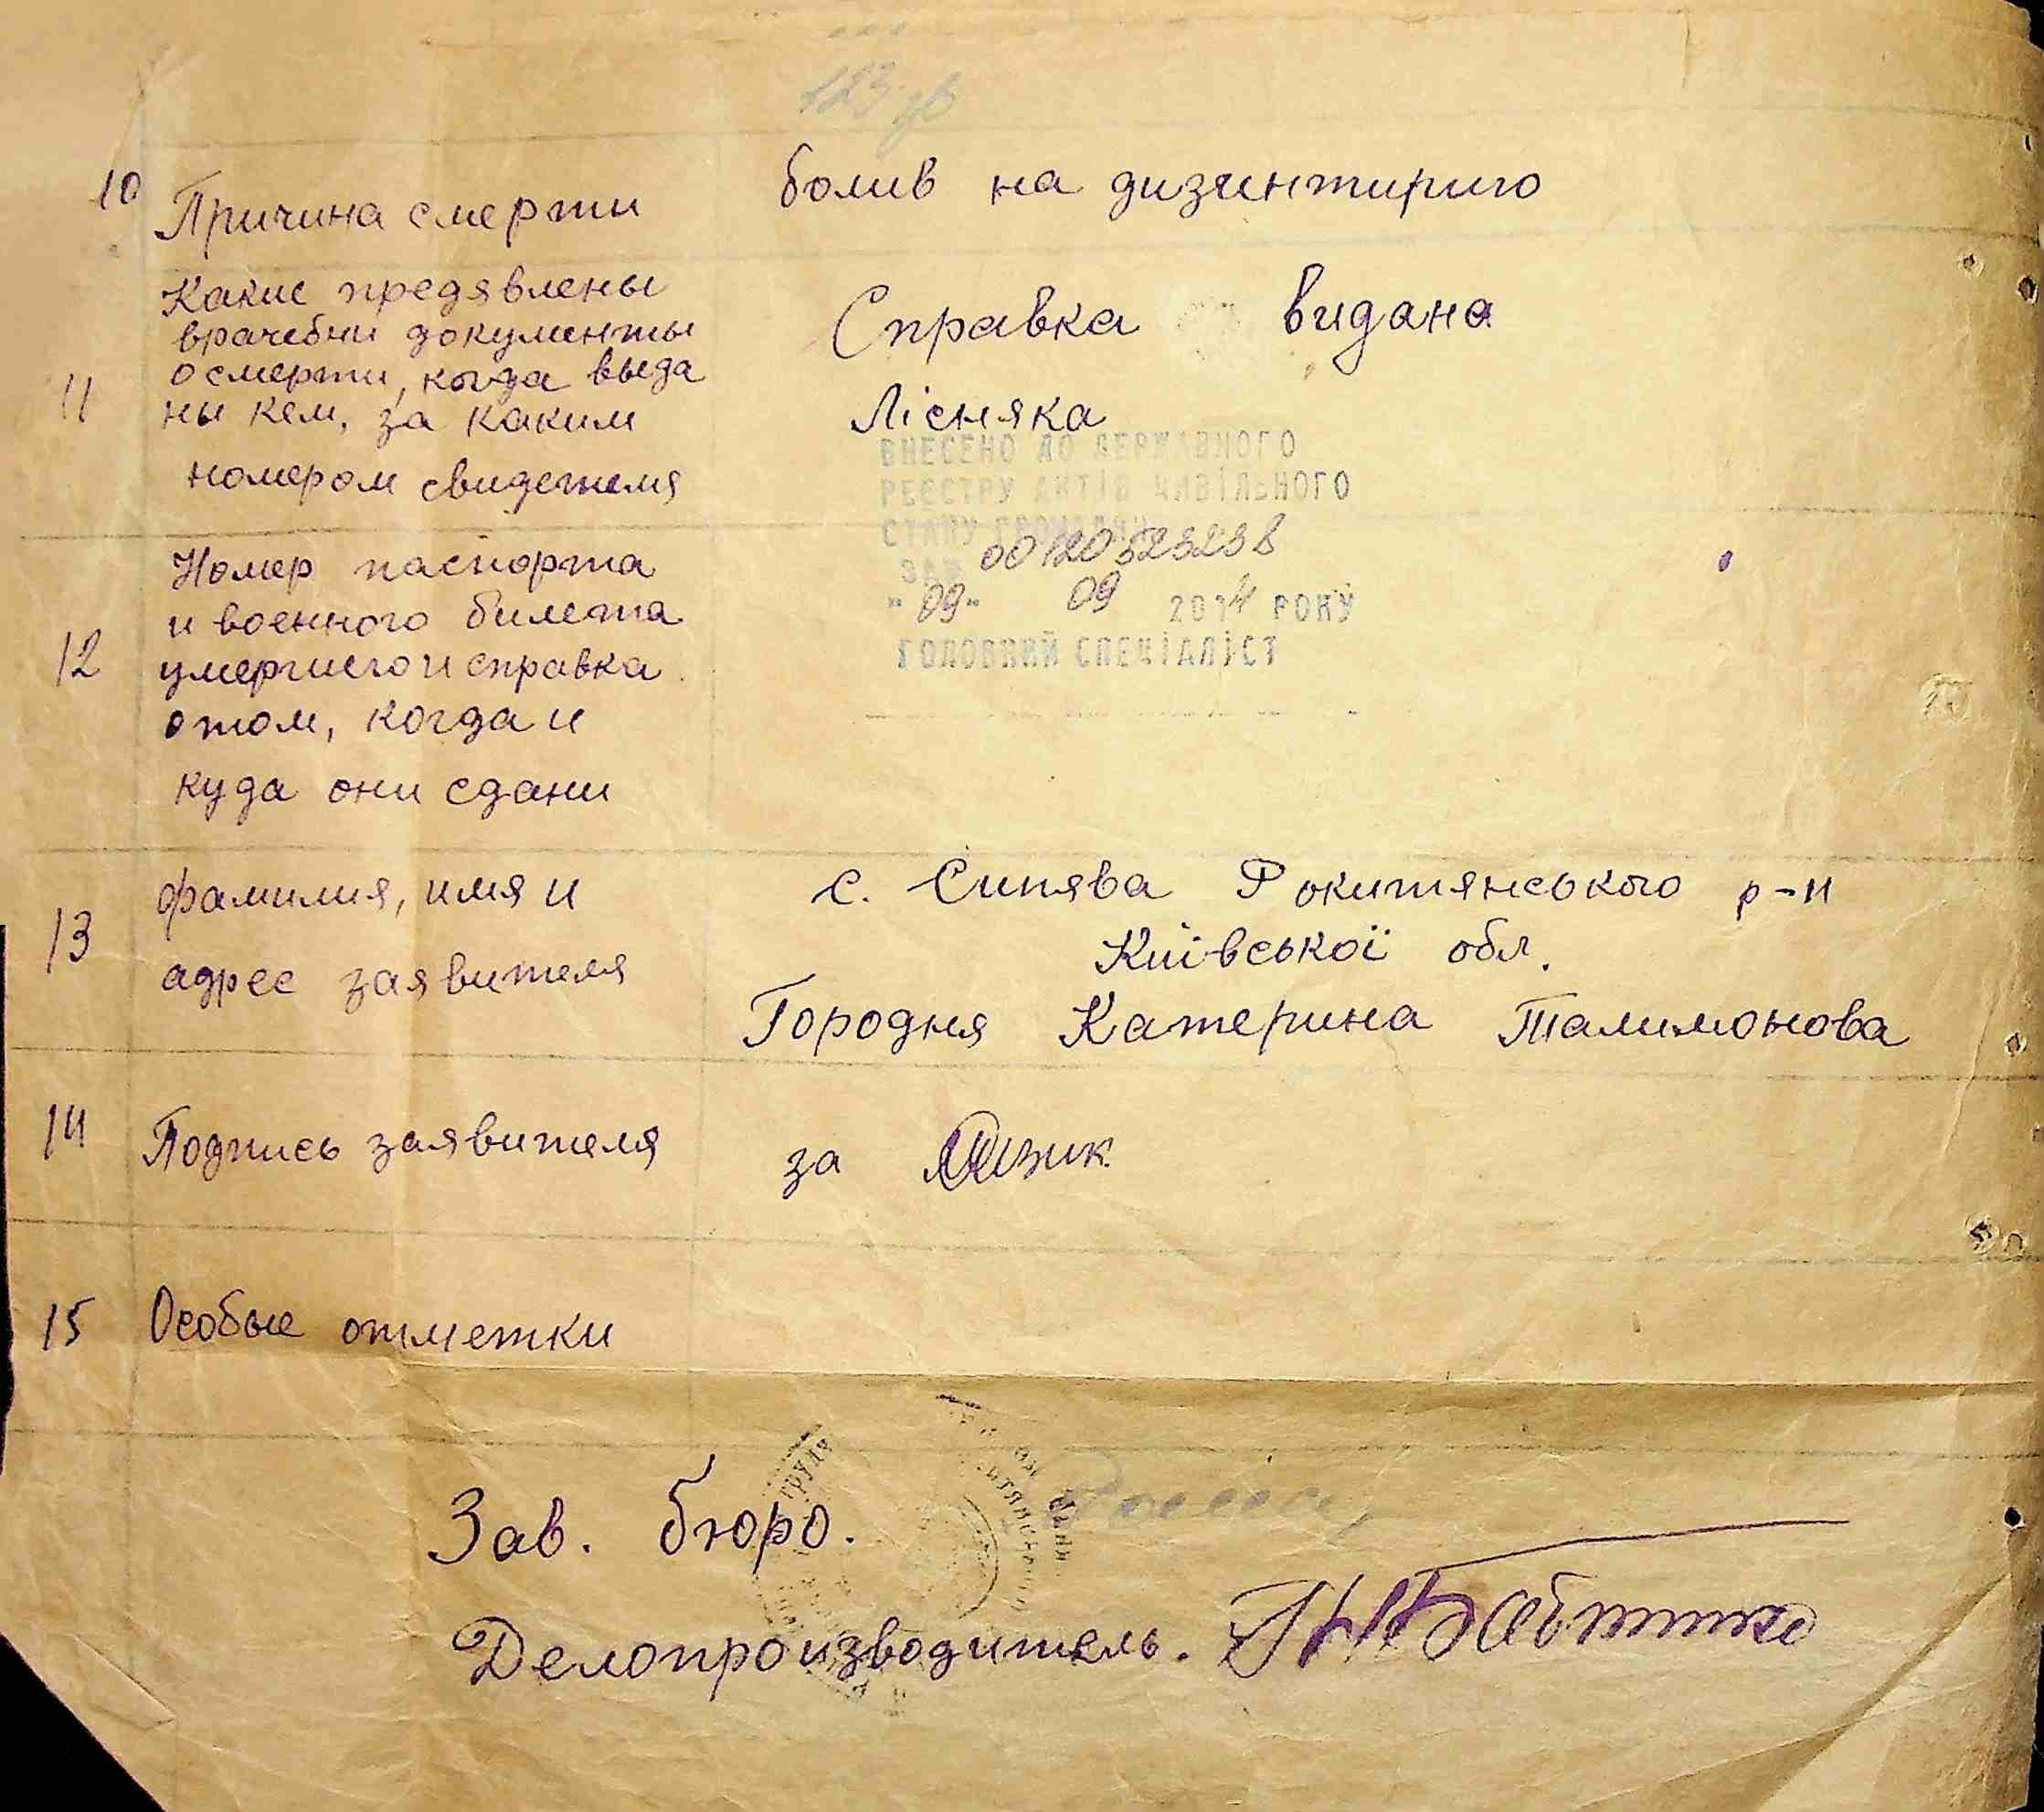 123 зв
10 Причина смерти болив на дизинтирию
Какие предявлены
врачебни документы
о смерти, когда выда
11 ны кем, за каким
номером свидетеля
Справка видана
Лісняка
ВНЕСЕНО ДО ДЕРЖАВНОГО
РЕЄСТРУ АКТІВ ЦИВІЛЬНОГО
СТАНУ ГРОМАДЯН
ЗА № 00120523238
"09" 09 2014 РОКУ
ГОЛОВНИЙ СПЕЦІАЛІСТ
Номер паспорта
и военного билета
12 умершего и справка
о том, когда и
куда они сдани
13 фамилия, имя и
адрес заявителя
с. Синява Рокитянського р-н
Київської обл.
Городня Катерина Талимонова
14 Подпись заявителя за
15 Особые отметки
Зав. бюро.
Делопроизводитель.